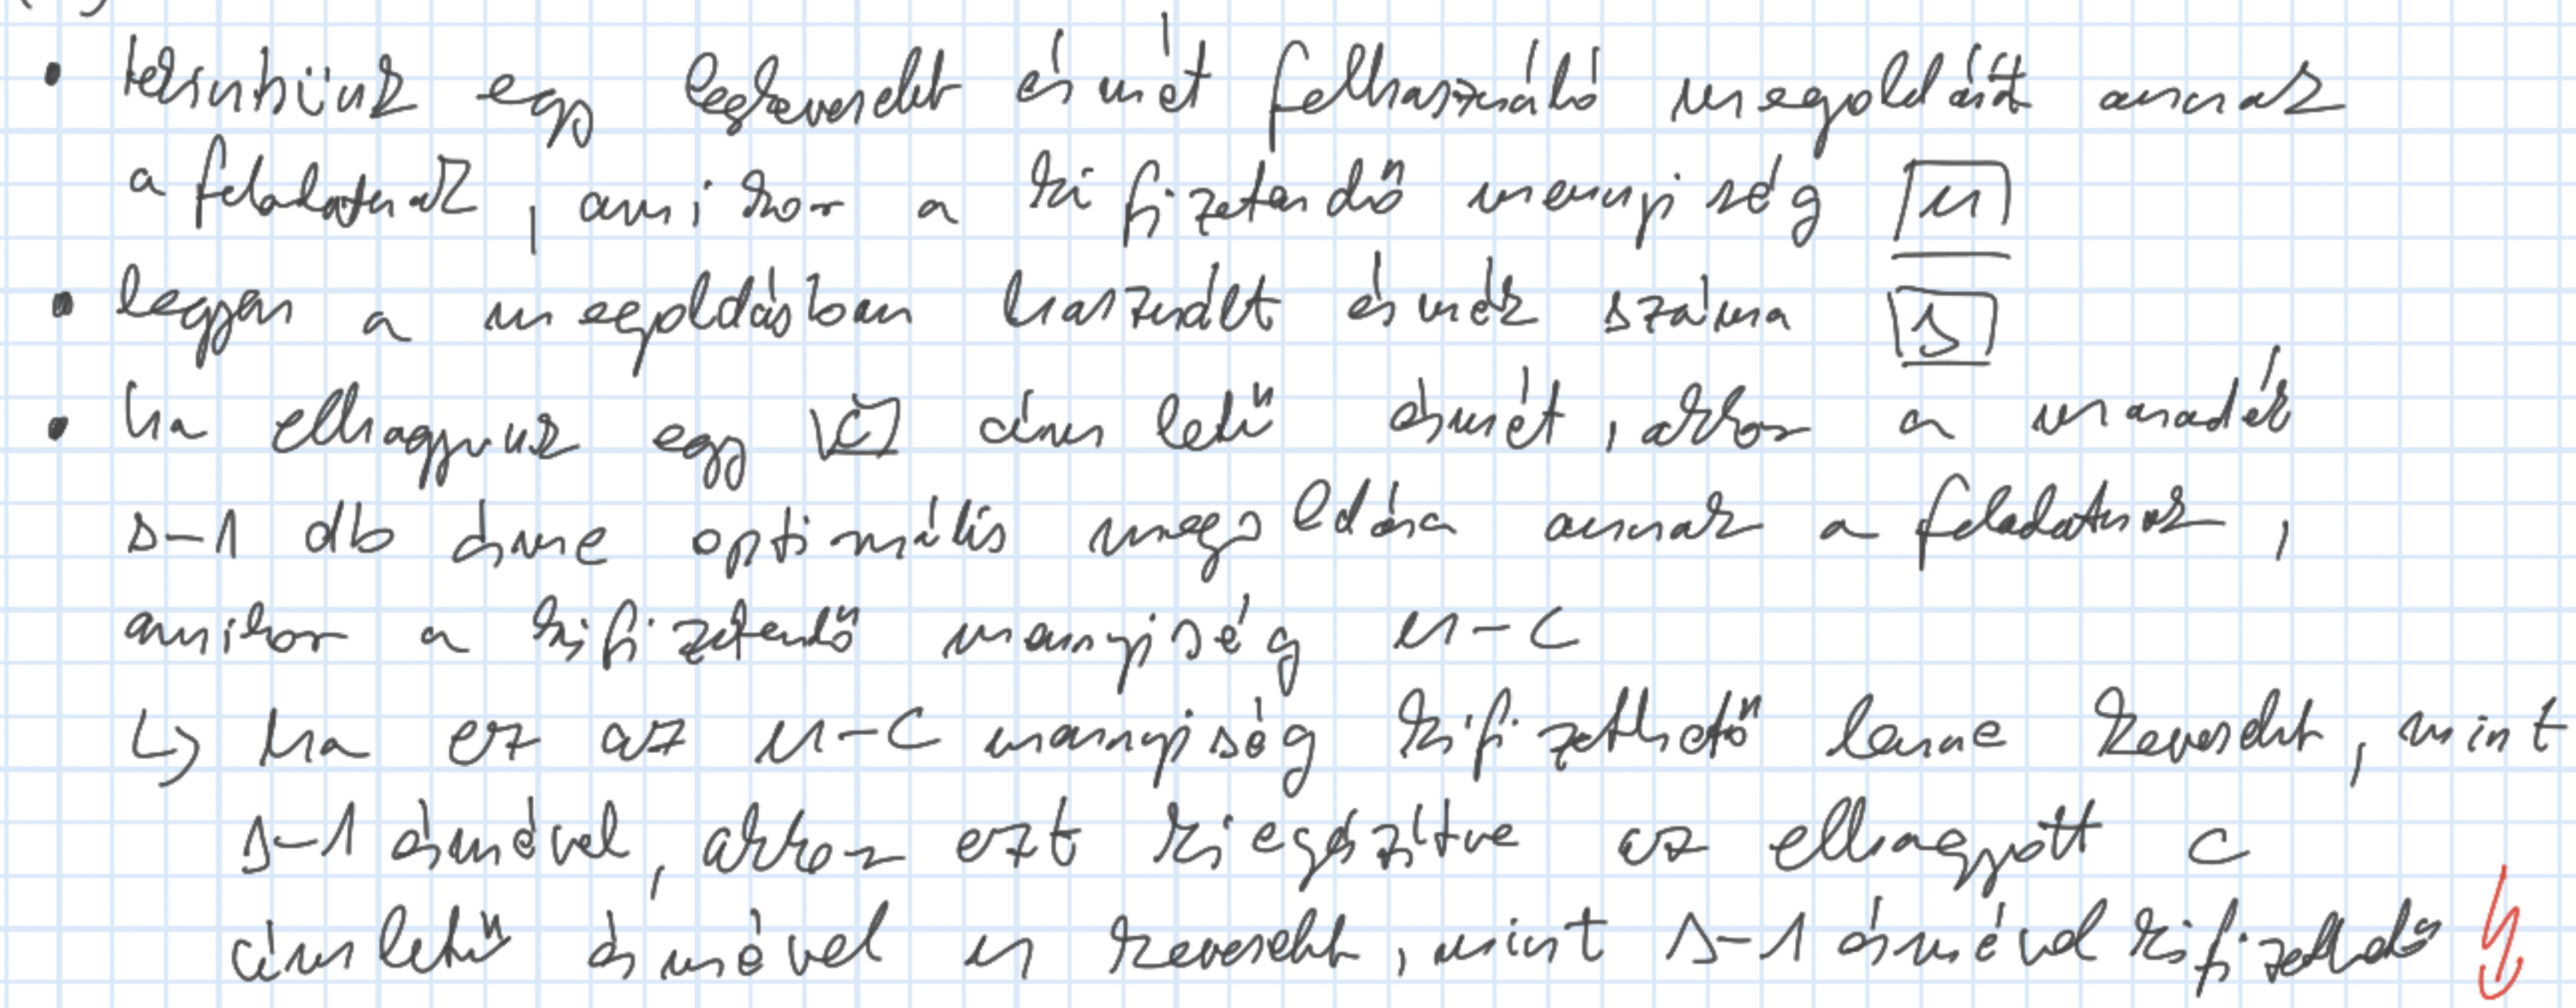 • tekintsünk egy legkevesebb érmét felhasználó megoldást annak
a feladatnak, amikor a kifizetendő mennyiség n
• legyen a megoldásban használt érmék száma s
• ha elhagyunk egy c címletű érmét, akkor a maradék
s-1 db érme optimális megoldása annak a feladatnak,
amikor a kifizetendő mennyiség n-c
↳ ha ez az n-c mennyiség kifizethető lenne kevesebb, mint
s-1 érmével, akkor ezt kiegészítve az elhagyott c
címletű érmével n kevesebb, mint s-1 érmével kifizethető